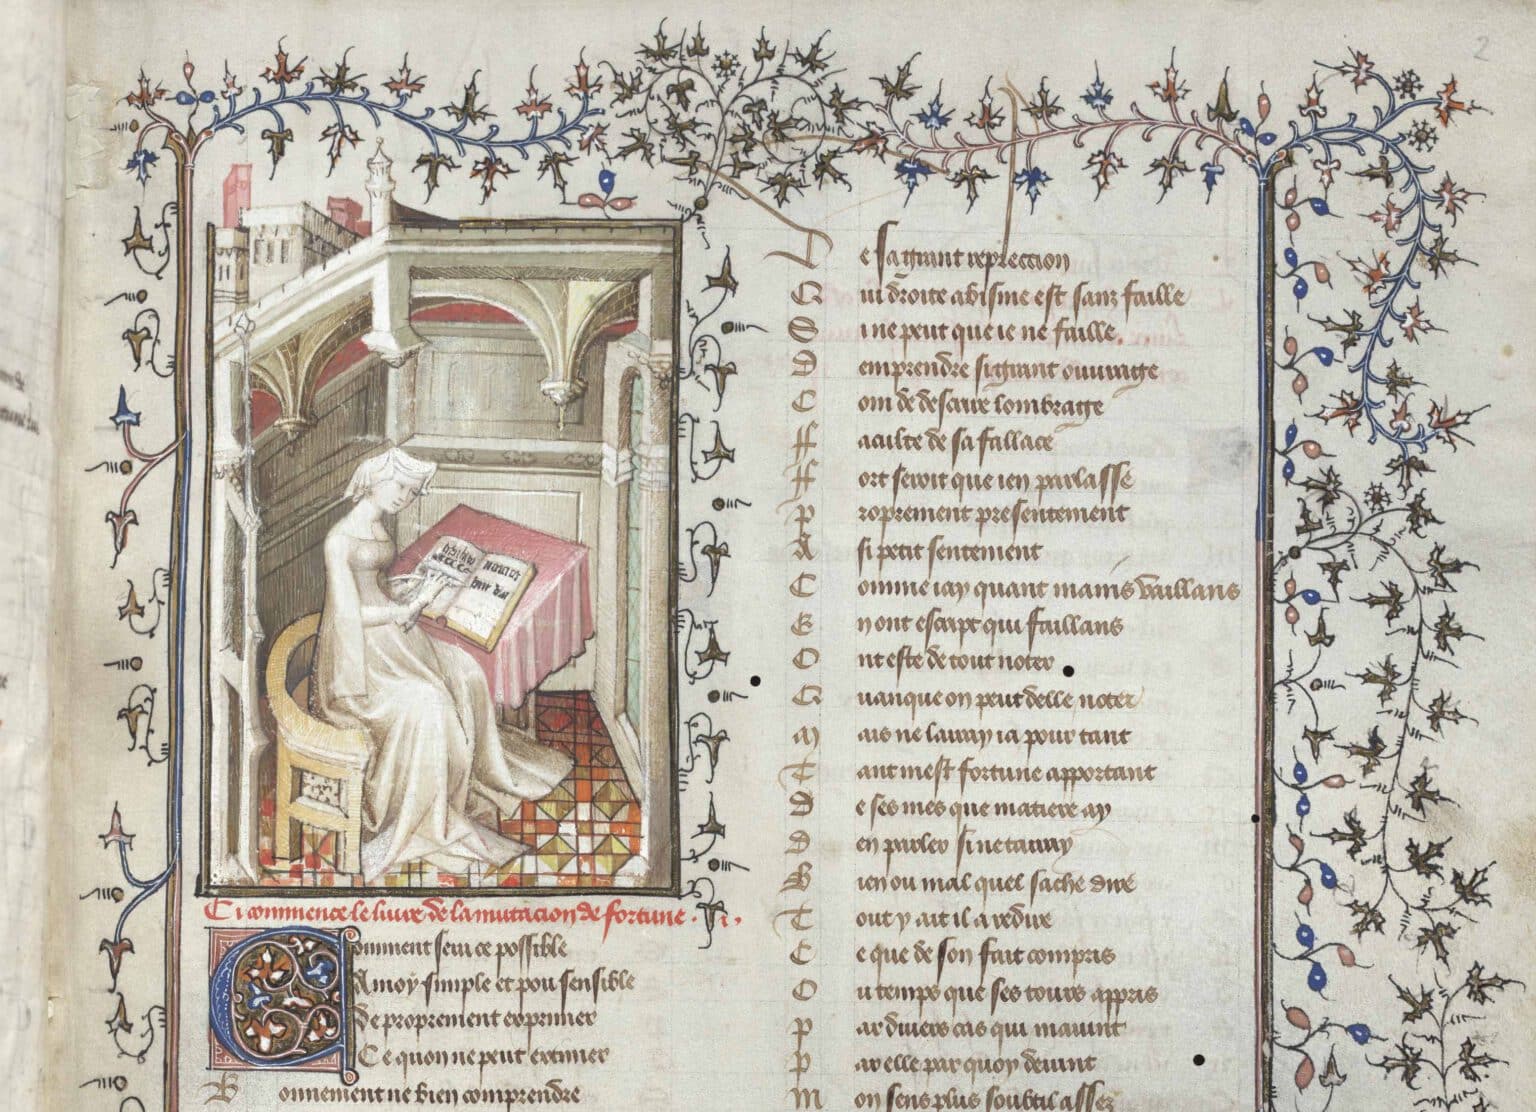 Ci commence le livre de la mutacion de fortune . i.
Comment sera ce possible
A moy simple et pou sensible
De proprement exprimer
Ce quon ne peut extimer
Bonnement ne bien comprendre
De sa grant repleccion
Qui droite abisme est sanz faille
Si ne peut que ie ne faille.
Demprendre si grant ouurage
Com de descrire lombrage
ffaculte de sa fallace
ffort seroit que ien parlasse
Proprement presentement
A si petit sentement
Comme iay quant mains vaillans
En ont escript qui faillans
Ont este de tout noter
Quanque on peut delle noter
Mais ne lairay ia pour tant
Tant mest fortune apportant
De ses mes que matiere ay
Den parler si ne tairay
Bien ou mal quel sache dire
Tout y ait il a redire
Ce que de son fait compris
Ou temps que ses tours appris
Par diuers cas qui mauint
Par elle par quoy deuint
Mon sens plus soubtil assez
2